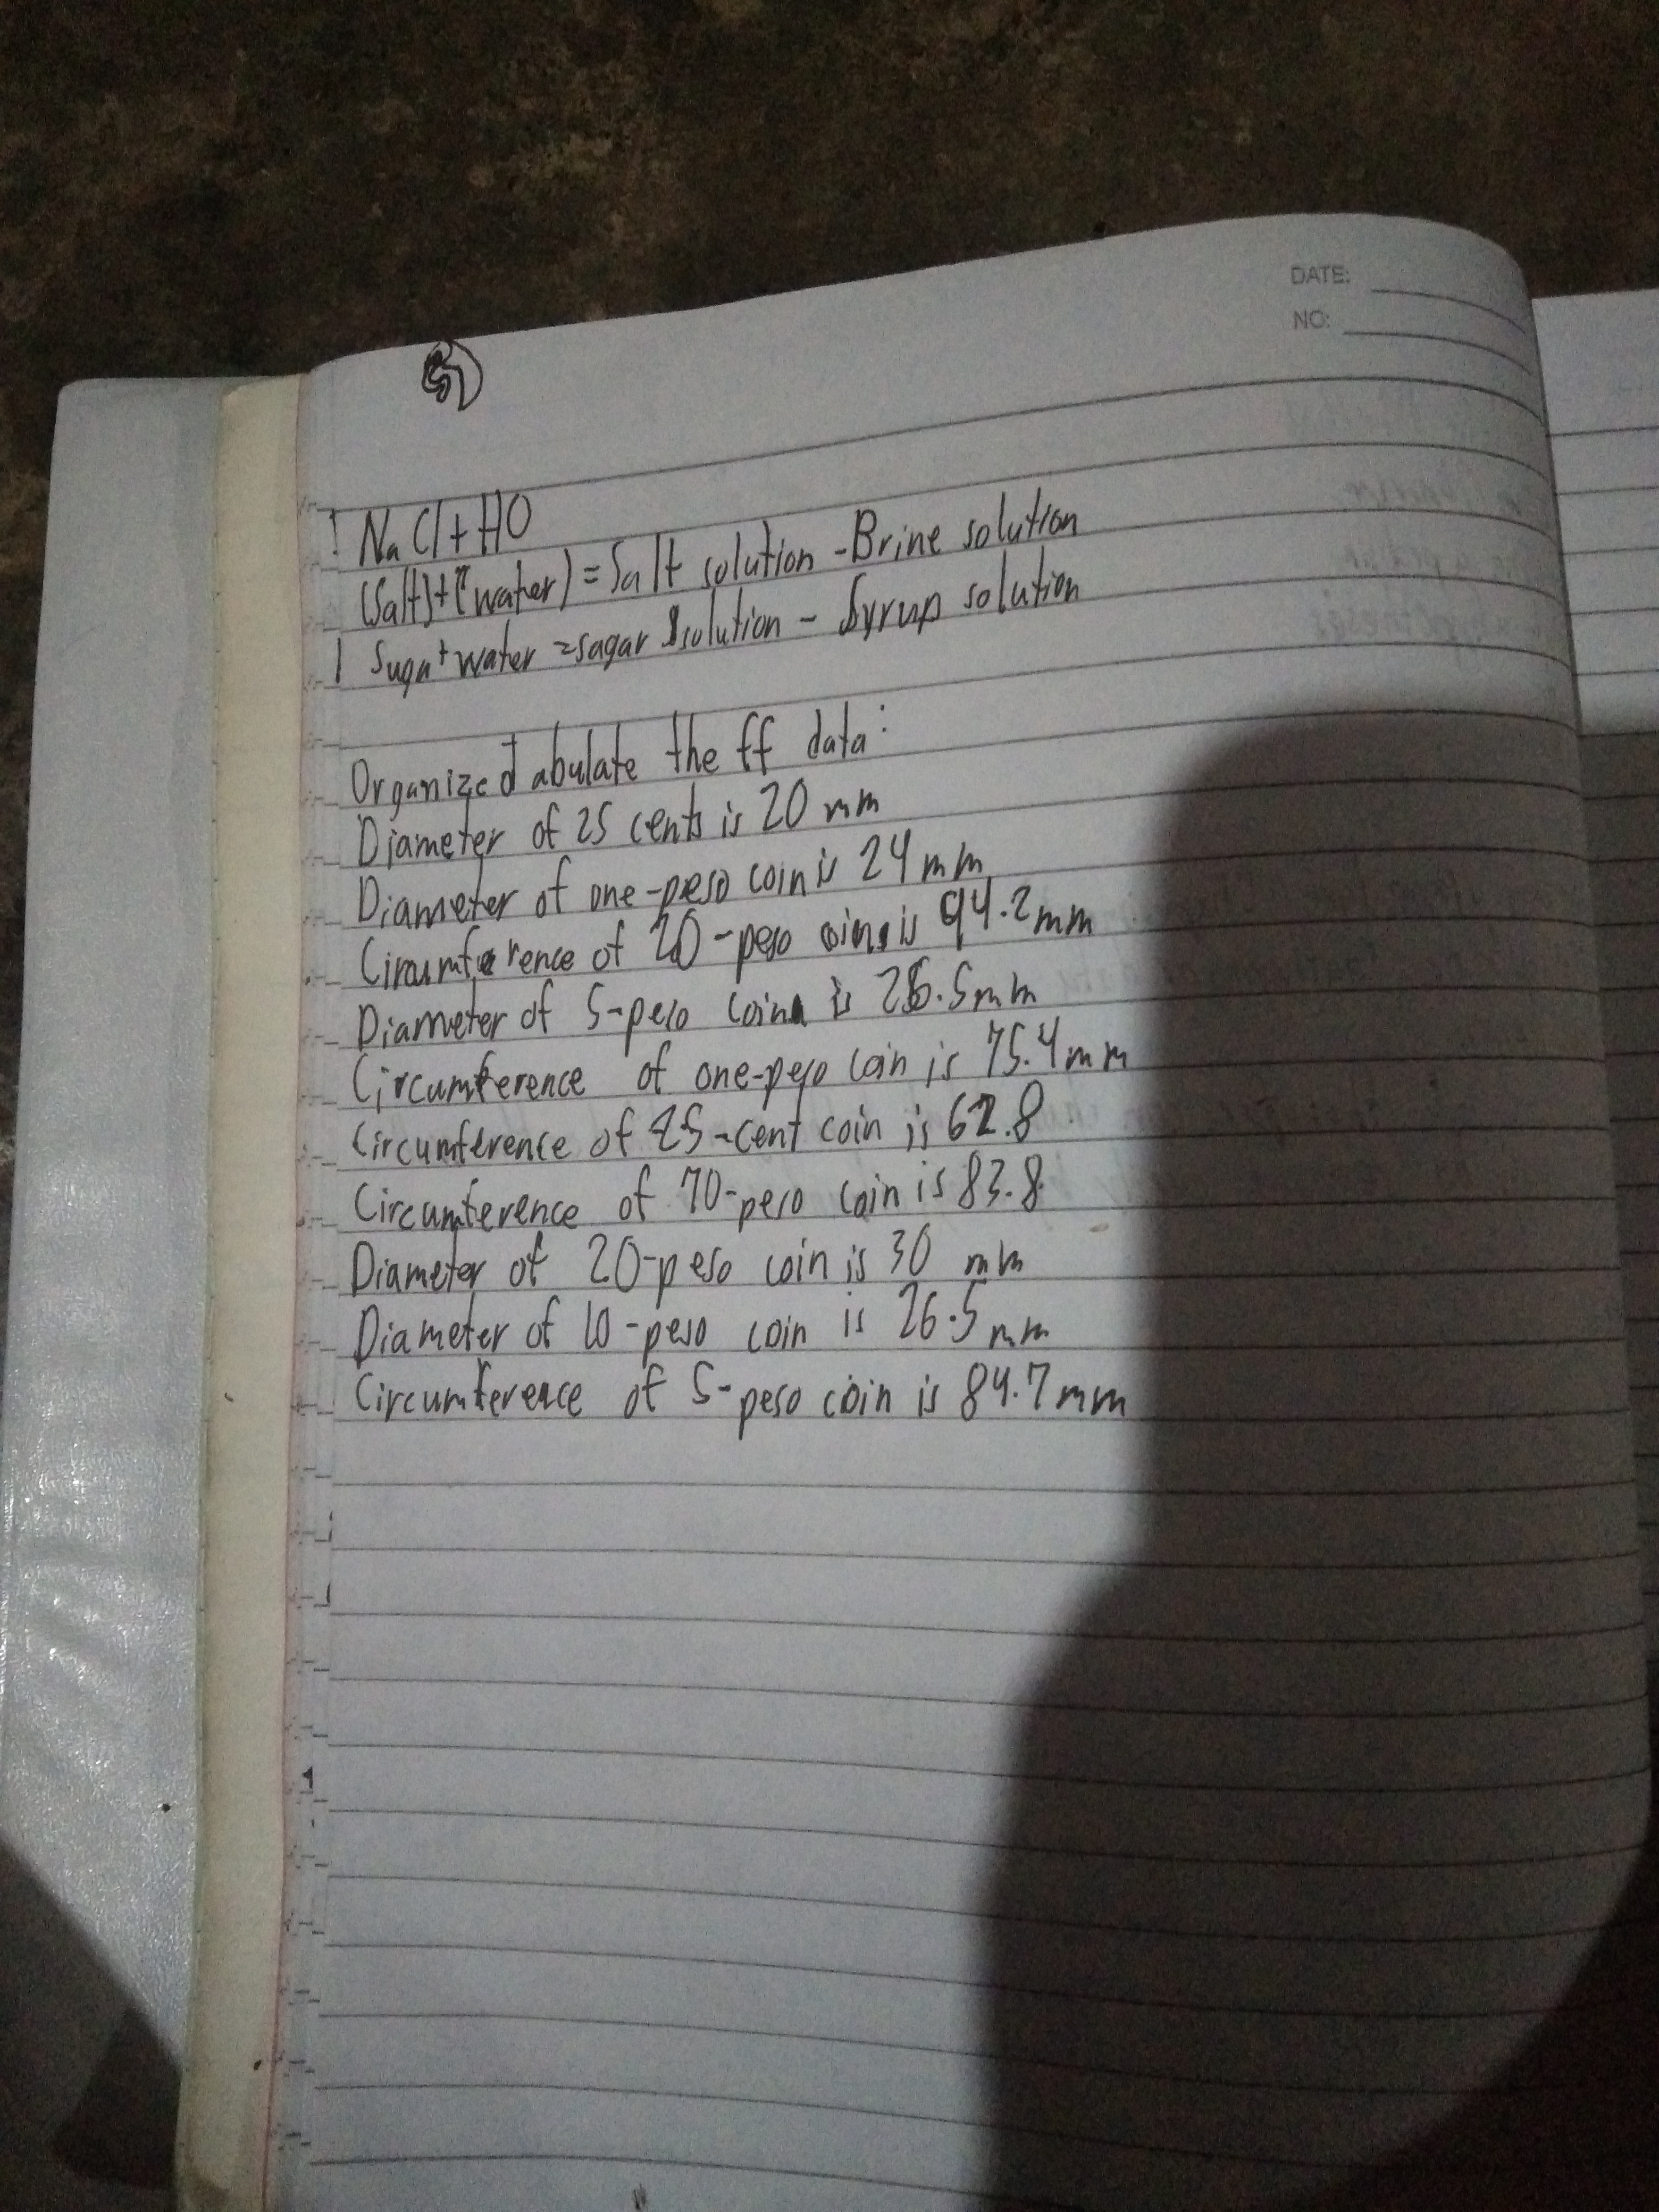 DATE:
NO:
! NaCl + HO
(Salt) + (water) = Salt solution - Brine solution
! Suga + water = sagar solution - Syrup solution
Organized tabulate the ff data:
Diameter of 25 cents is 20 mm
Diameter of one-peso coin is 24 mm
Circumference of 20-peso coin is 94.2 mm
Diameter of 5-peso coin is 26.5 mm
Circumference of one-peso coin is 75.4 mm
Circumference of 25-cent coin is 62.8
Circumference of 10-peso coin is 83.8
Diameter of 20-peso coin is 30 mm
Diameter of 10-peso coin is 26.5 mm
Circumference of 5-peso coin is 84.7 mm